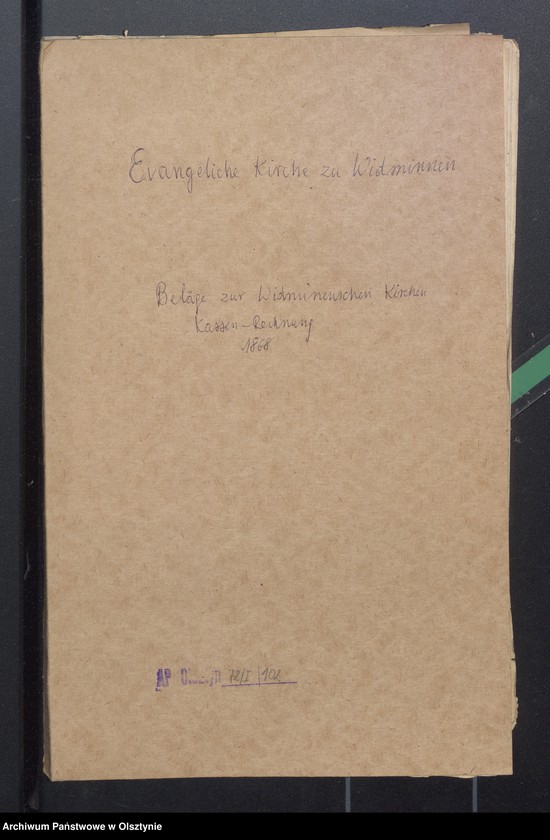 Evangeliche Kirche zu Widminnen
Beläge zur Widminenschen Kirchen
Kassen-Rechnung
1868
AP 72/I/102
Archiwum Państwowe w Olsztynie